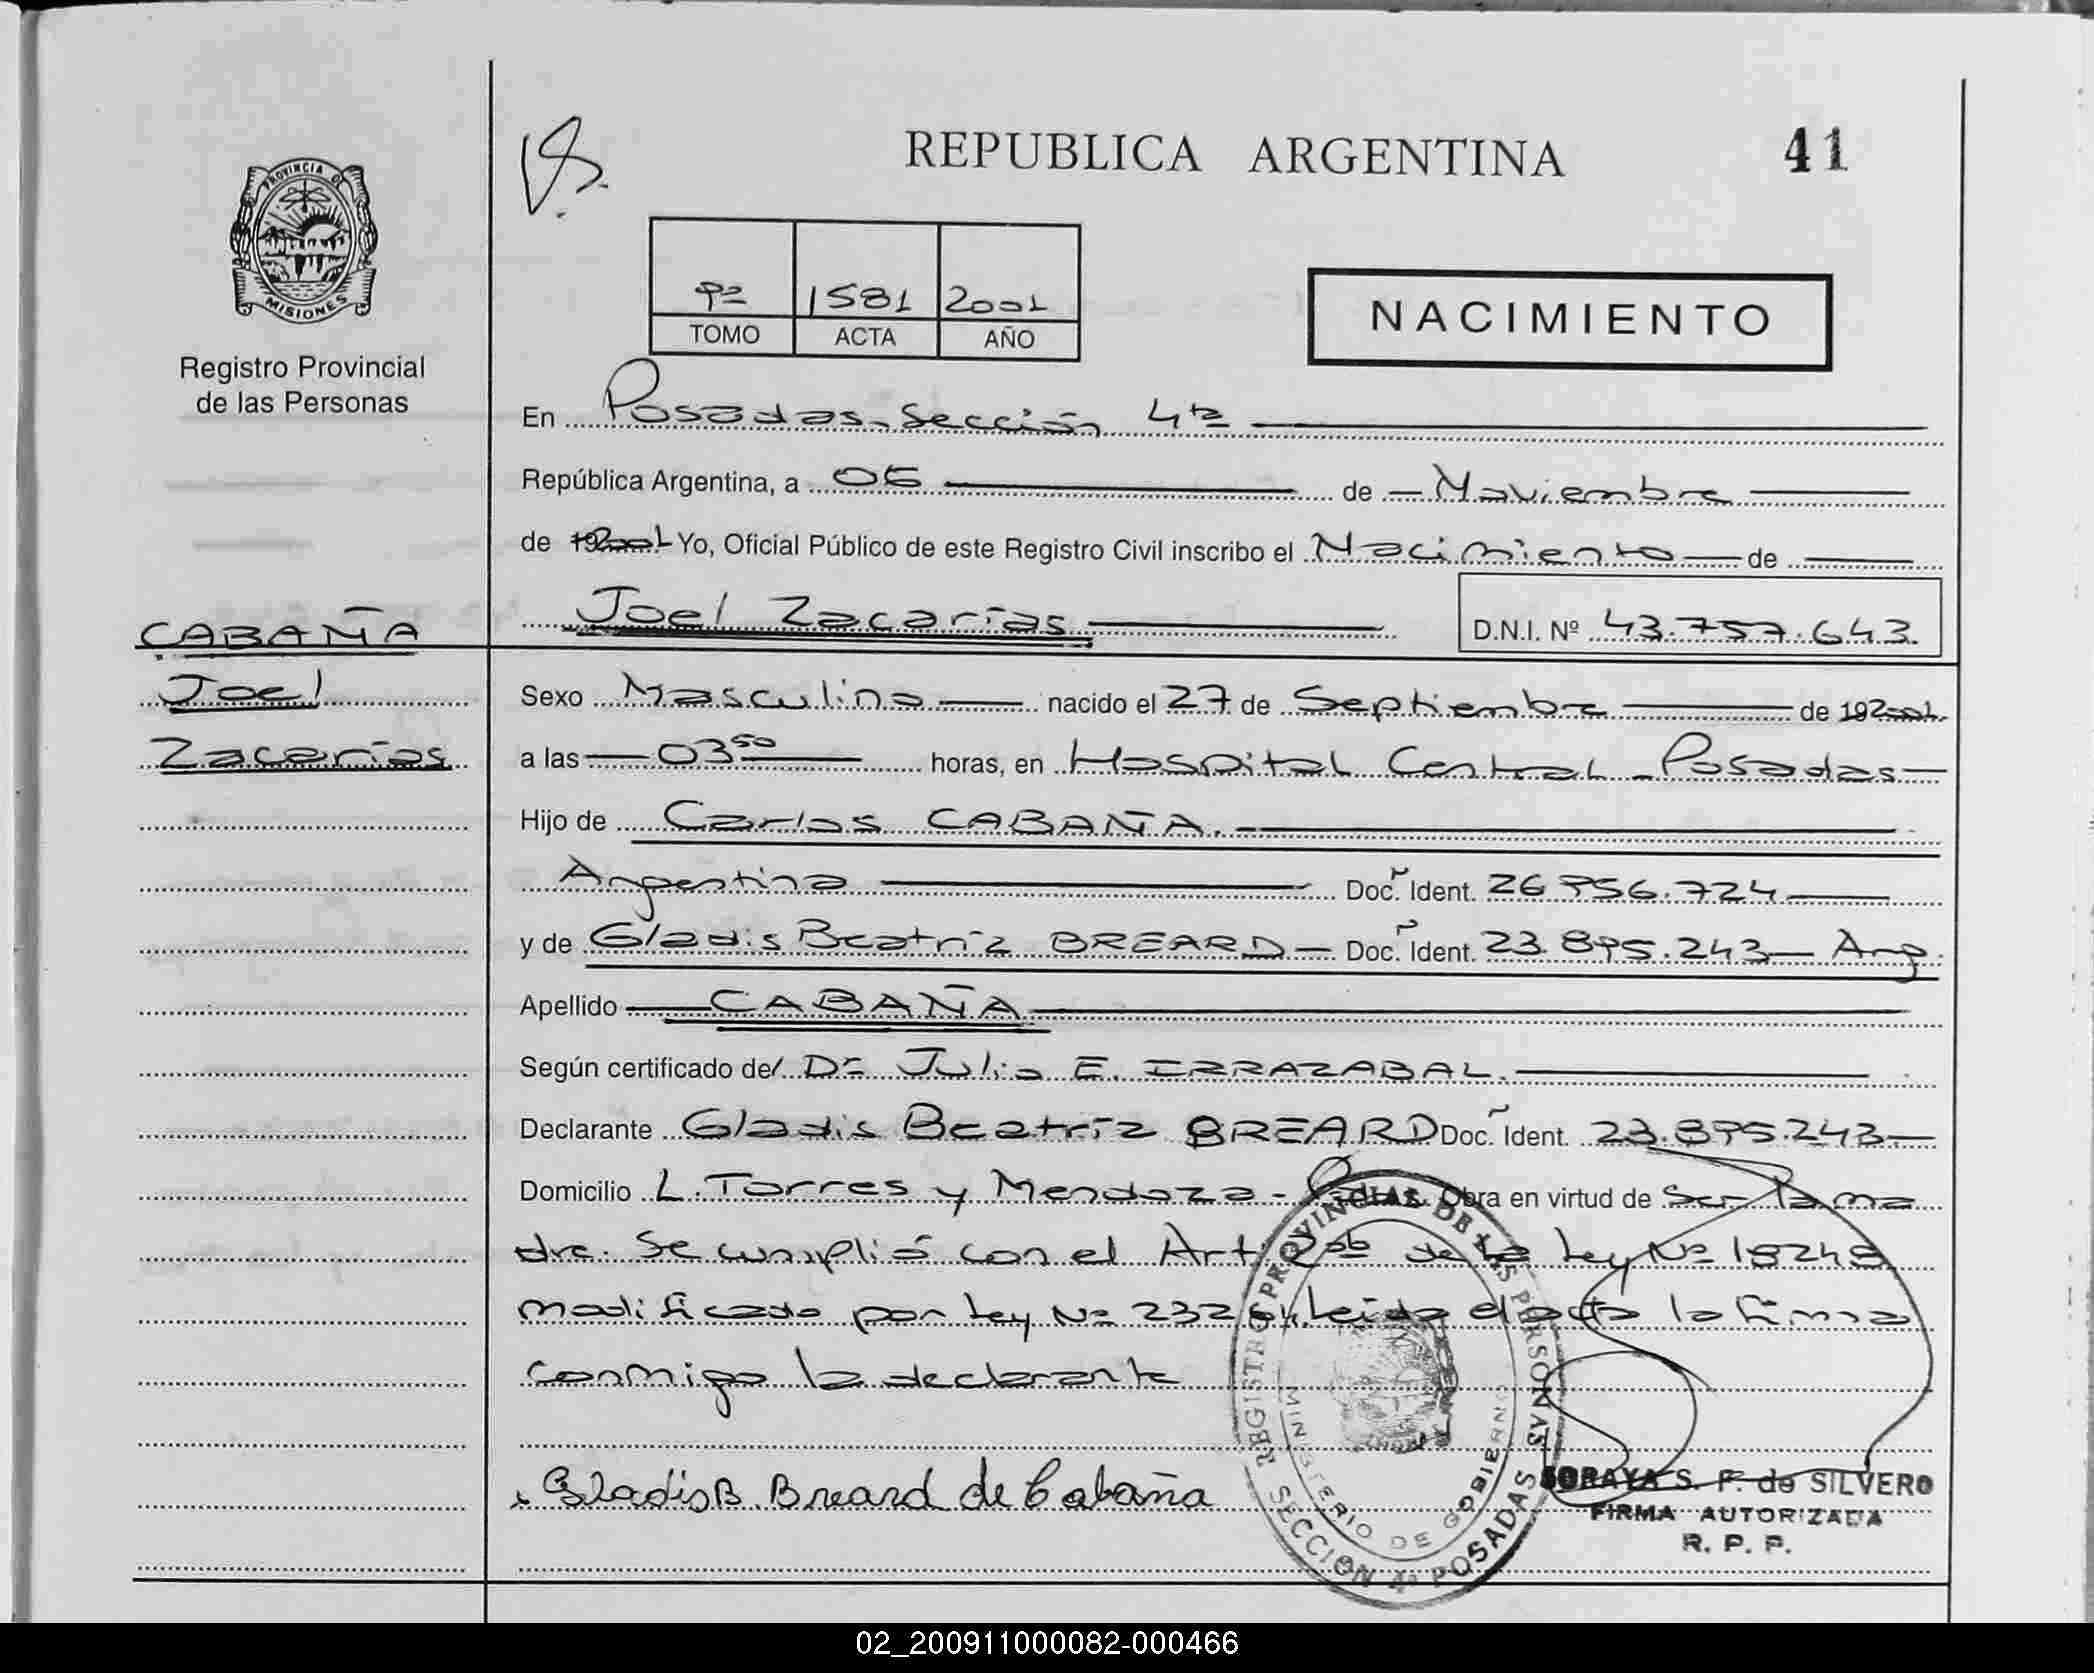 REPUBLICA ARGENTINA
41
PROVINCIA DE
MISIONES
Registro Provincial
de las Personas
9º 1581 2001
TOMO ACTA AÑO
NACIMIENTO
En Posadas - Sección 4ta
República Argentina, a 06 de Noviembre
de 2001 Yo, Oficial Público de este Registro Civil inscribo el Nacimiento de
Joel Zacarías
D.N.I. Nº 43.757.643
CABAÑA
Joel
Zacarías
Sexo Masculino nacido el 27 de Septiembre de 2001
a las 03 50 horas, en Hospital Central - Posadas
Hijo de Carlos CABAÑA.
Argentina Doc. Ident. 26.956.724
y de Gladis Beatríz BREARD Doc. Ident. 23.895.243 Arg.
Apellido CABAÑA
Según certificado del Dr. Julio E. IRRAZABAL.
Declarante Gladis Beatríz BREARD Doc. Ident. 23.895.243
Domicilio L. Torres y Mendoza - Obra en virtud de Ser la ma
dre. Se cumplió con el Art. de la Ley Nº 18248
modificado por Ley Nº 23264. Leída el acta la firma
conmigo la declarante
Gladis B. Breard de Cabaña
REGISTRO PROVINCIAL DE LAS PERSONAS
MINISTERIO DE GOBIERNO
SECCION 4ª POSADAS
SORAYA S. F. de SILVERO
FIRMA AUTORIZADA
R. P. P.
02_200911000082-000466